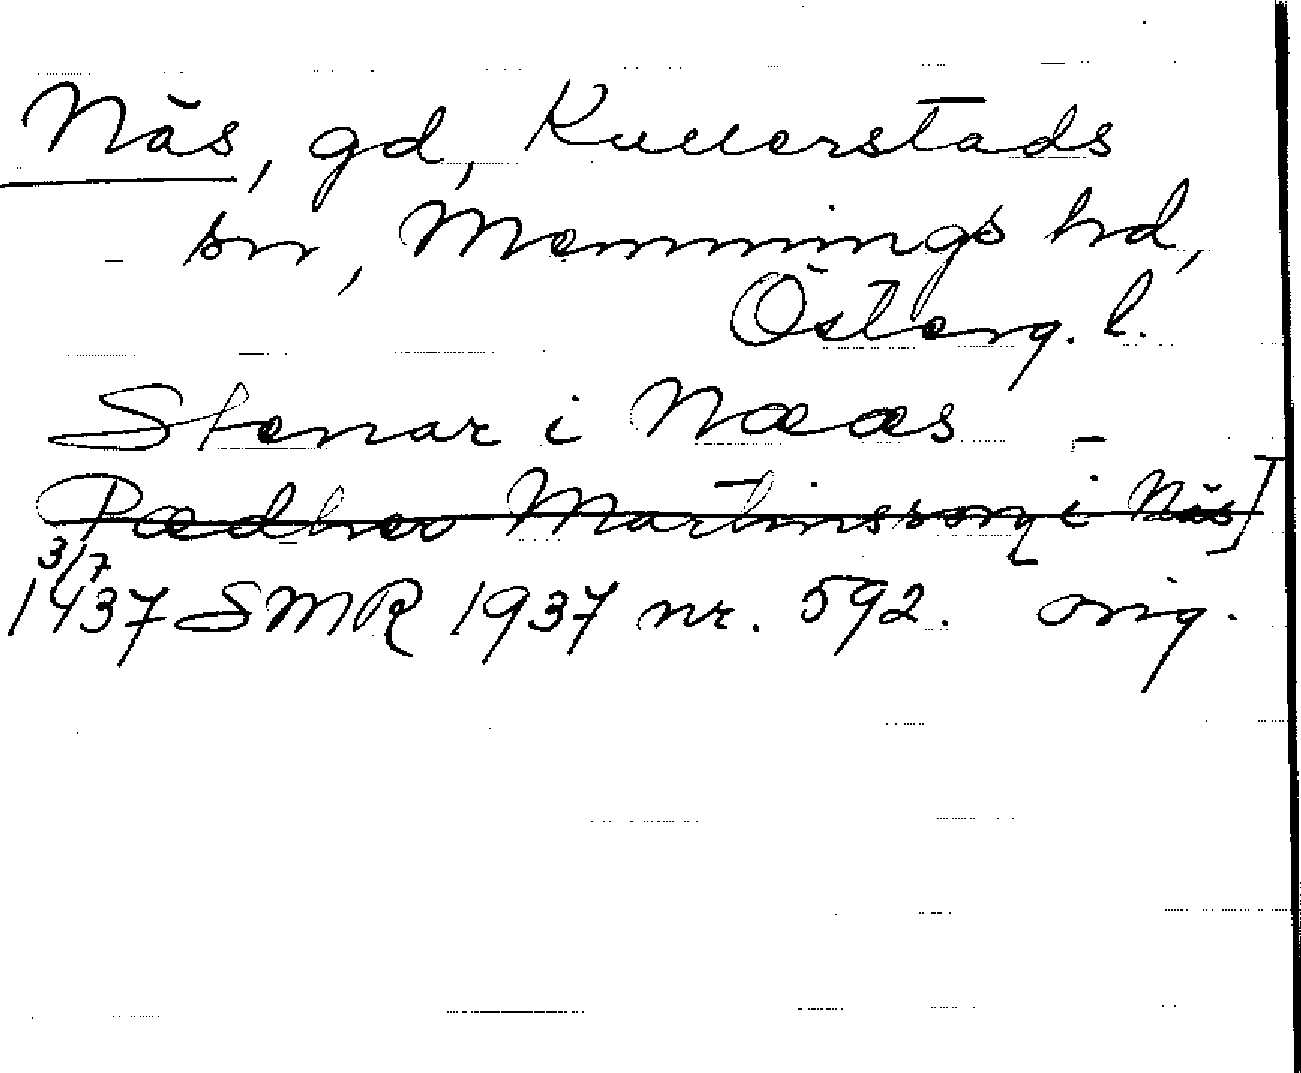 Näs, gd, Kullerstads
sn, Memmings hd,
Österg. l.
Stenar i Nææs -
Pædher Martinsson i Näs]
3/7
1437 SMR 1937 nr. 592. orig.